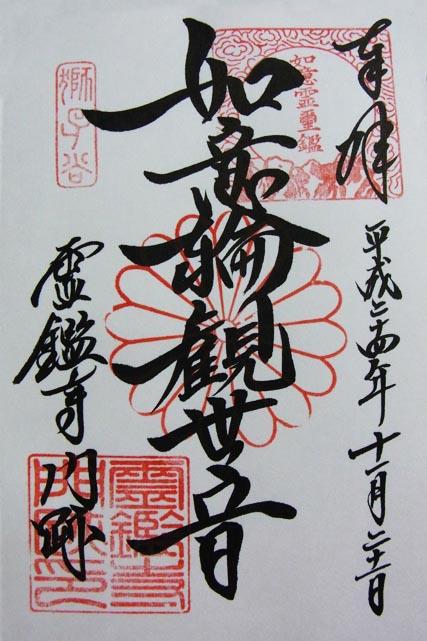 奉拝
平成二十四年十一月二十二日
如意靈璽鑑
如意輪観世音
獅子谷
霊鑑寺門跡
靈鑑寺
門跡之印